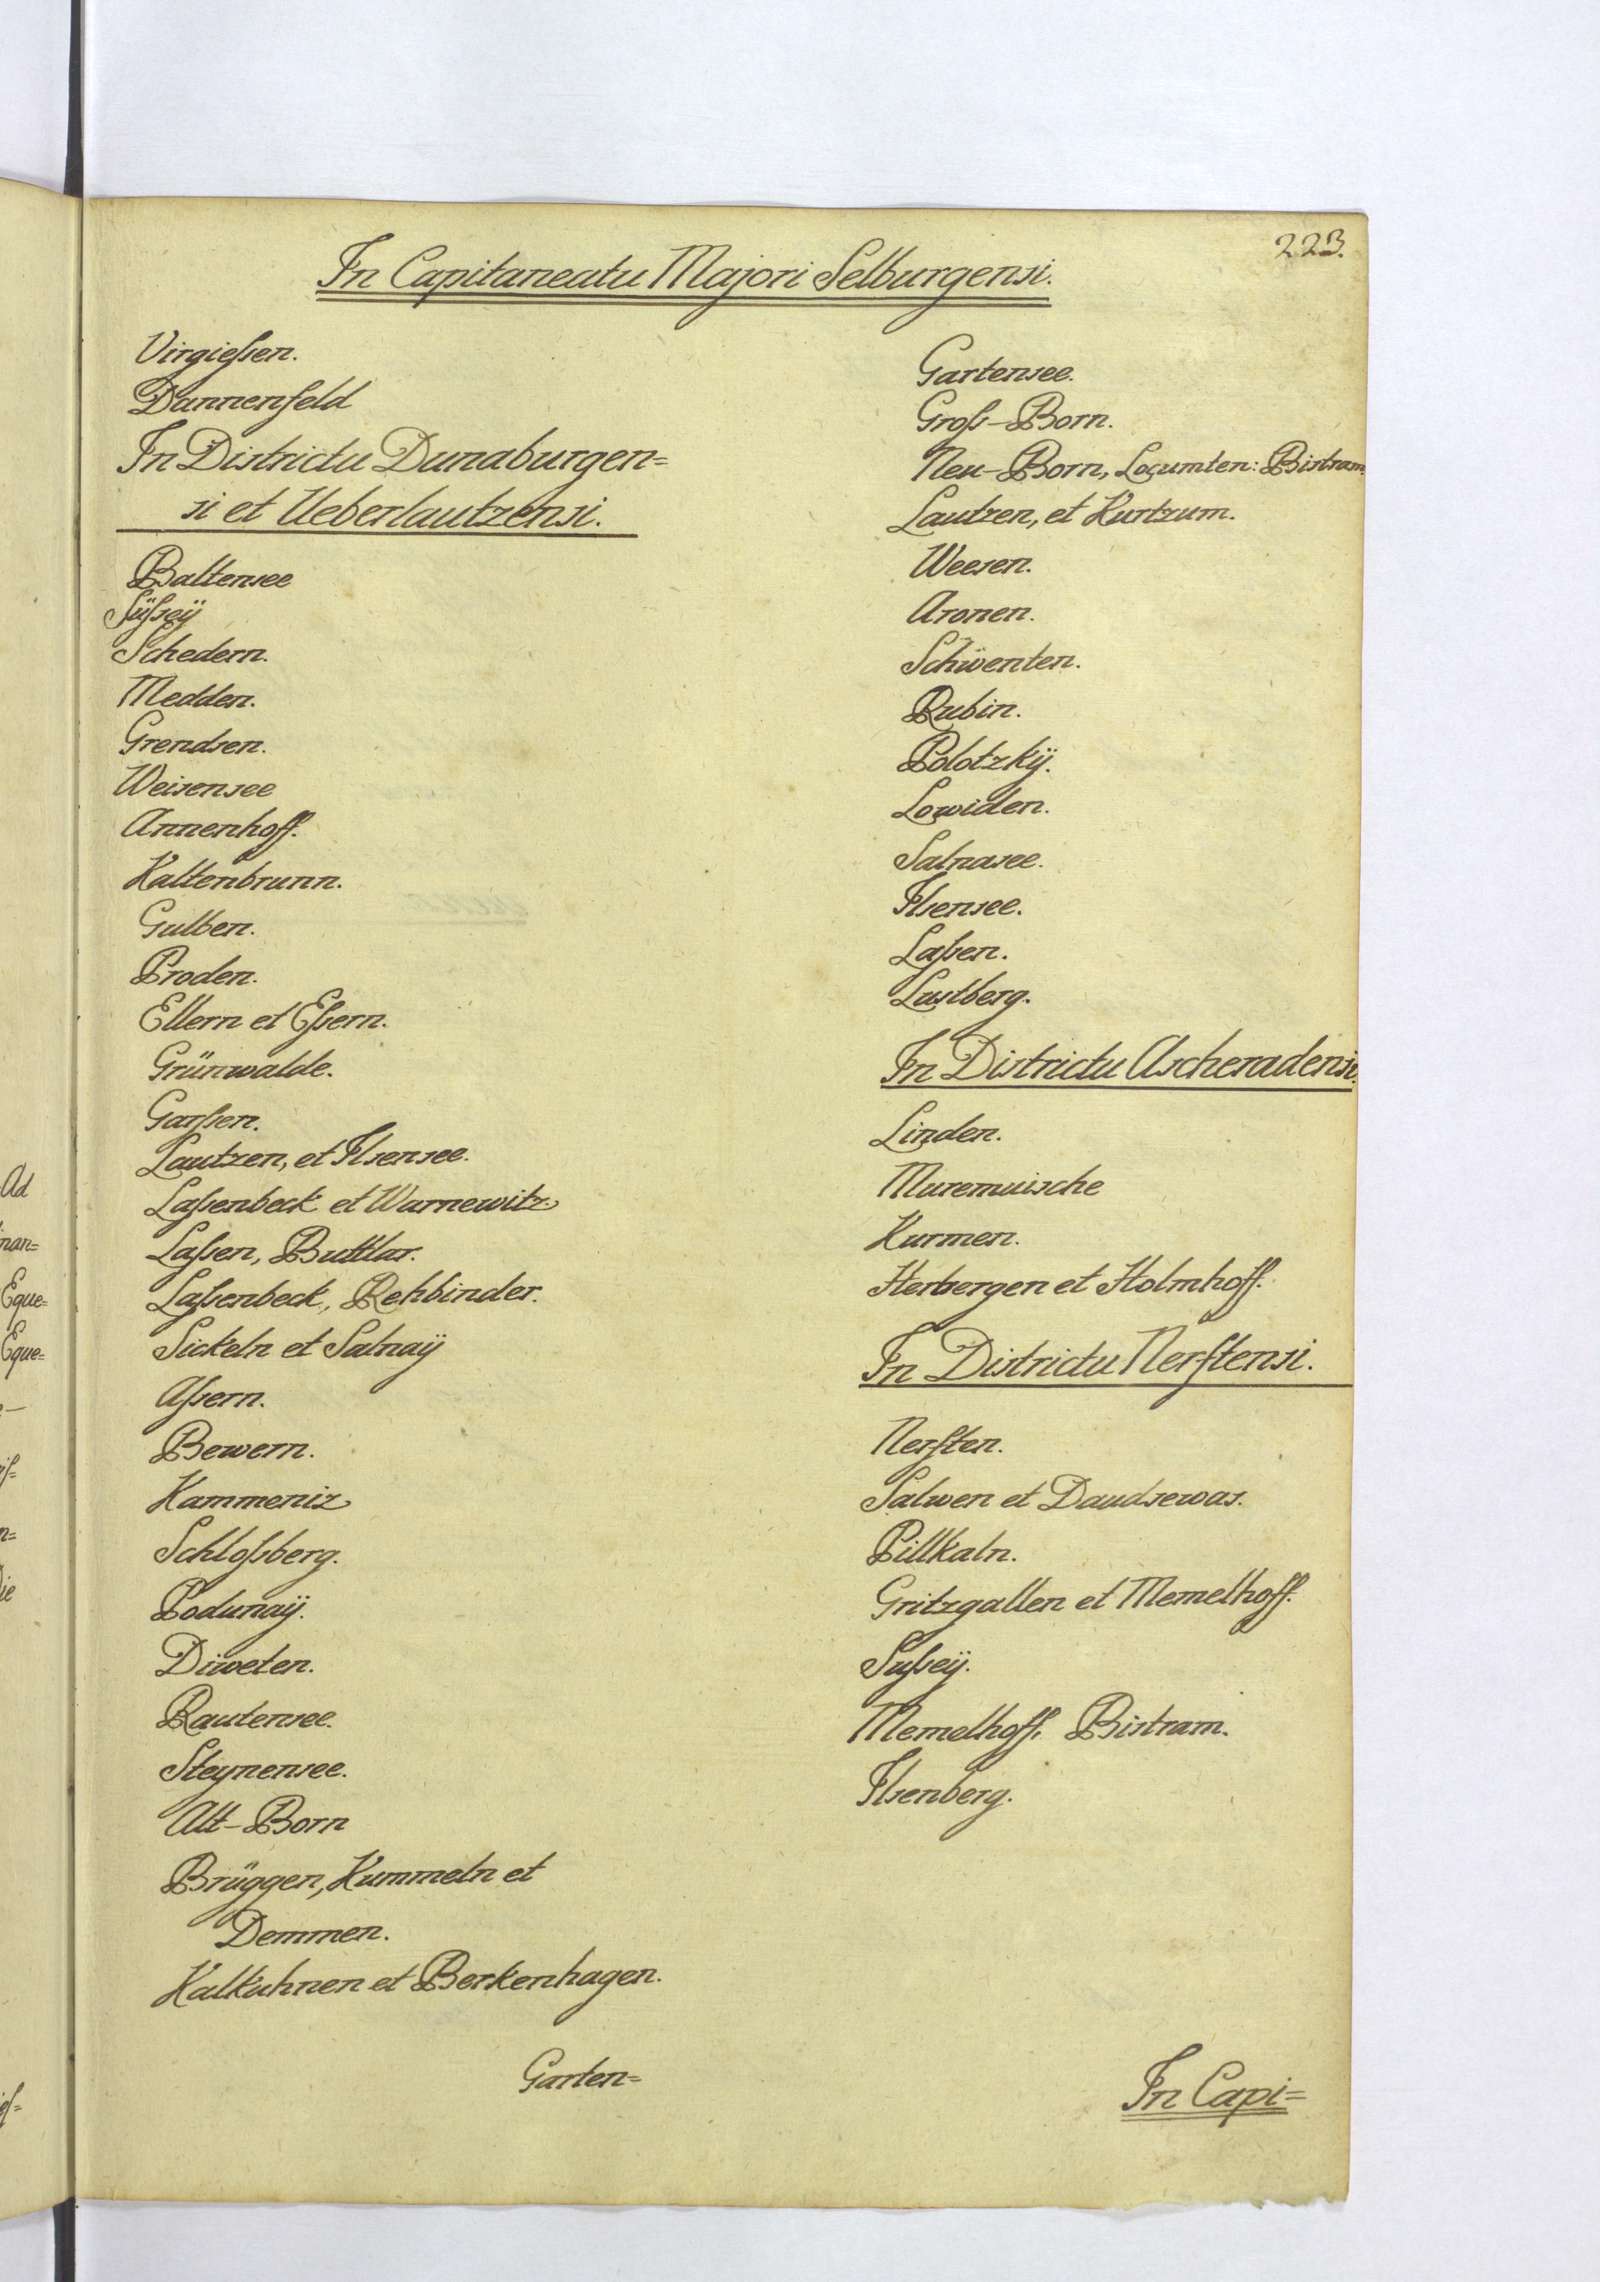 223.
In Capitaneatu Majori Selburgensi.
Virgießen.
Dannenfeld
In Districtu Dunaburgen=
si et Ueberlautzensi.
Baltensee
Süßeÿ
Schedern.
Medden.
Grendsen.
Weisensee
Annenhoff.
Kaltenbrunn.
Gulben.
Proden.
Ellern et Eßern.
Grünwalde.
Garßen.
Lautzen, et Ilsensee.
Laßenbeck et Warnewitz.
Laßen, Buttlar.
Laßenbeck, Rehbinder.
Sickeln et Salnaÿ
Aßern.
Bewern.
Kammeniz
Schloßberg.
Podunaÿ.
Diweten.
Rautensee.
Steynensee.
Alt-Born
Brüggen, Kummeln et
Demmen.
Kalkuhnen et Berkenhagen.
Garten=
Gartensee.
Groß-Born.
Neu-Born, Locumten: Bistram.
Lautzen, et Kurtzum.
Weesen.
Aronen.
Schwenten.
Rubin.
Polotzkÿ.
Lowiden.
Salnasee.
Ilsensee.
Laßen.
Lustberg.
In Districtu Ascheradensi.
Linden.
Muremuische
Kurmen.
Herbergen et Holmhoff.
In Districtu Nerftensi.
Nerften.
Salwen et Daudsewas.
Pillkaln.
Gritzgallen et Memelhoff.
Sußeÿ.
Memelhoff, Bistram.
Ilsenberg.
In Capi=